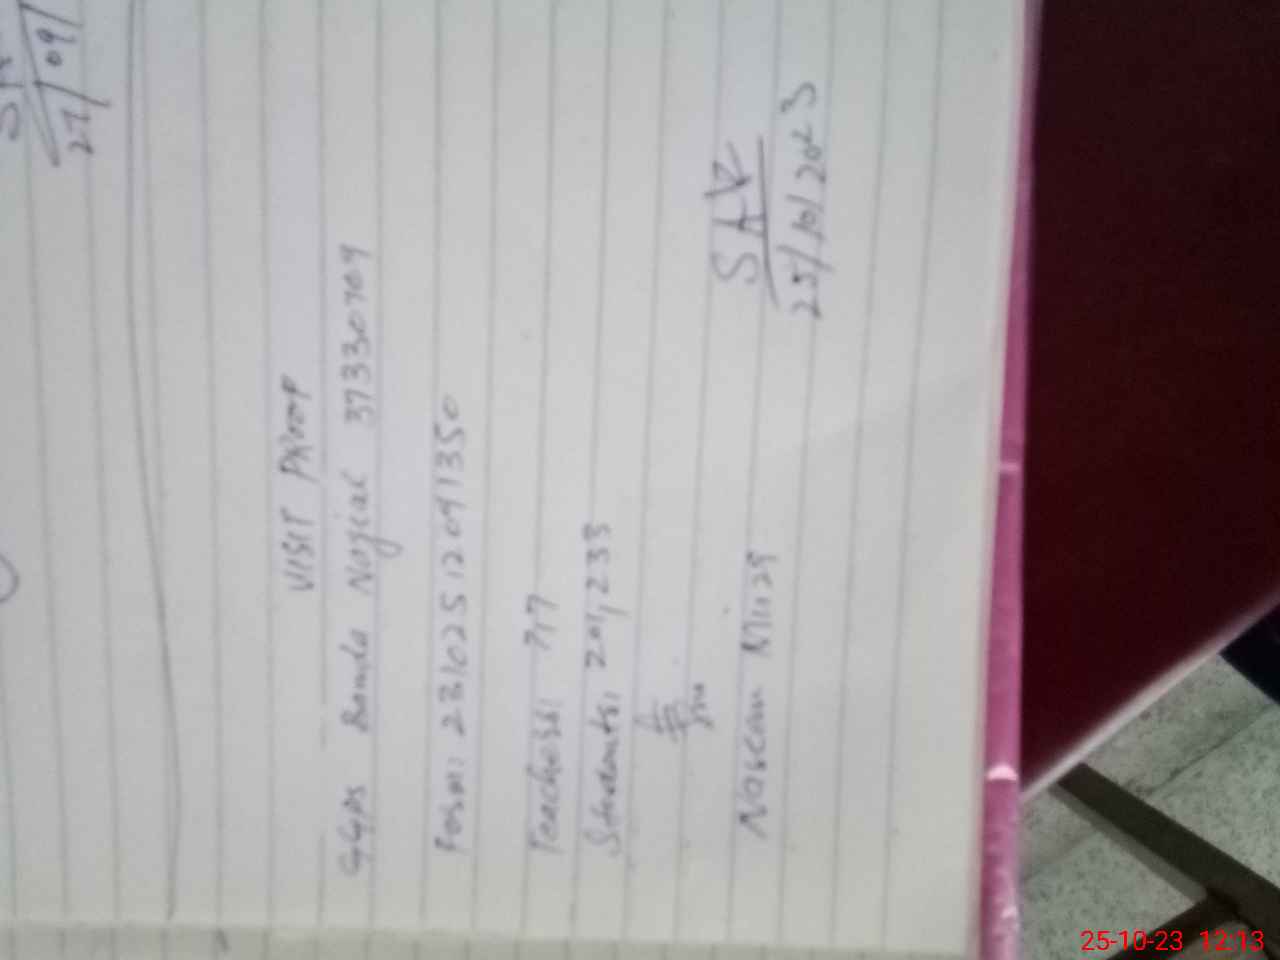 27/09/
VISIT PROOF
GGPS Banda Nogial 37330709
Form: 23102512091350
Teachers: 7,7
Students: 201, 233
Naseem
SAK
25/10/2023
25-10-23 12:13